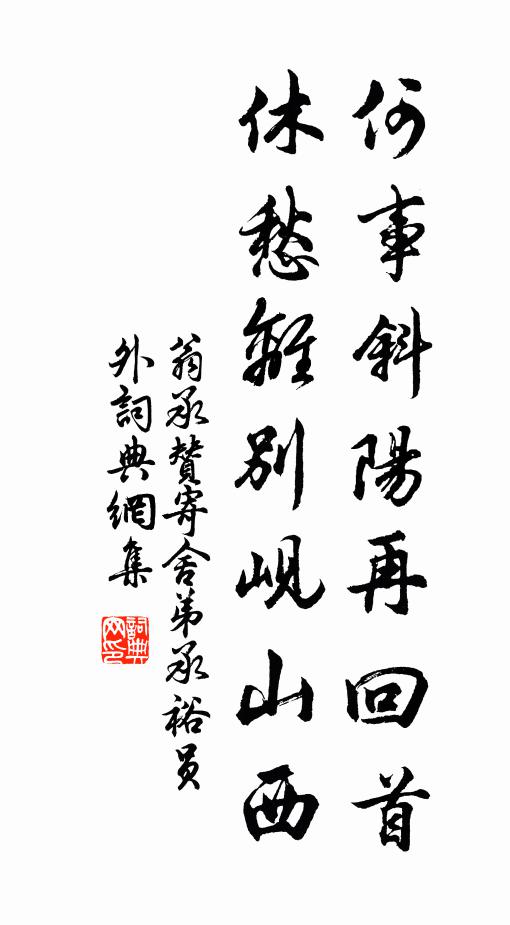 何事斜陽再回首
休愁離別峴山西
翁承贊寄舍弟承裕員
外詞典網集
詞典網印